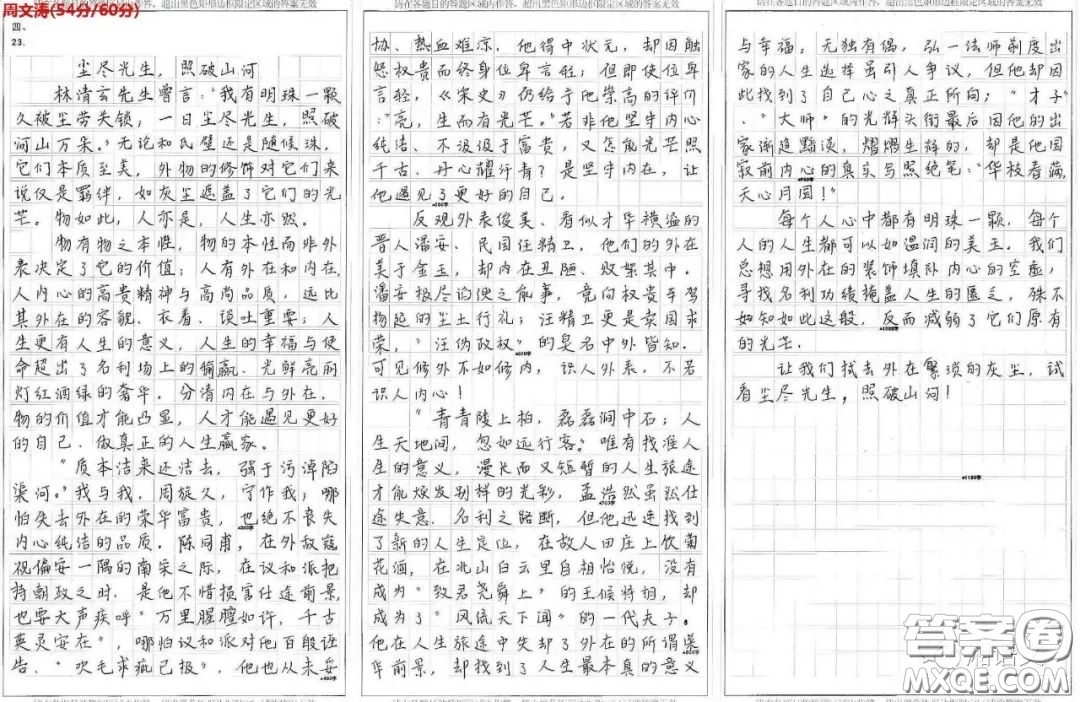 周文涛(54分/60分)
请在各题目的答题区域内作答，超出黑色矩形边框限定区域的答案无效
四、
23.
尘尽光生，照破山河
林清玄先生曾言："我有明珠一颗
久被尘劳关锁；一日尘尽光生，照破
河山万朵。"无论和氏璧还是随候珠，
它们本质至美，外物的修饰对它们来
说仅是羁绊，如灰尘遮盖了它们的光
芒。物如此，人亦是，人生亦然。
物有物之本性，物的本性而非外
表决定了它的价值；人有外在和内在，
人内心的高贵精神与高尚品质，远比
其外在的容貌、衣着、谈吐重要；人
生更有人生的意义，人生的幸福与使
命超出了名利场上的输赢、光鲜亮丽
灯红酒绿的奢华。分清内在与外在，
物的价值才能凸显，人才能遇见更好
的自己，做真正的人生赢家。
"质本洁来还洁去，强于污淖陷
渠沟。"我与我，周旋久，宁作我；哪
怕失去外在的荣华富贵，也绝不丧失
内心纯洁的品质。陈同甫，在外敌寇
视偏安一隅的南宋之际，在议和派把
持朝政之时，是他不惜损害仕途前景，
也要大声疾呼"万里腥膻如许，千古
英灵安在"，哪怕议和派对他百般诬
告、"吹毛求疵已极"，他也从未妥
协、热血难凉。他得中状元，却因触
怒权贵而终身位卑言轻；但即使位卑
言轻，《宋史》仍给予他崇高的评价
："亮，生而有光芒。"若非他坚守内心
纯洁、不汲汲于富贵，又怎能光芒照
千古、丹心耀汗青？是坚守内在，让
他遇见了更好的自己。
反观外表俊美、看似才华横溢的
晋人潘安、民国汪精卫，他们的外在
美于金玉，却内在丑陋、败絮其中。
潘安极尽谄谀之能事，竟向权贵车驾
扬起的尘土行礼；汪精卫更是卖国求
荣，"汪伪政权"的臭名中外皆知。
可见修外不如修内，识人外表，不若
识人内心！
"青青陵上柏，磊磊涧中石；人
生天地间，忽如远行客。"唯有找准人
生的意义，漫长而又短暂的人生旅途
才能焕发别样的光彩，孟浩然虽然仕
途失意、名利之路断，但他迅速找到
了新的人生定位，在故人田庄上饮菊
花酒，在北山白云里自相怡悦，没有
成为"致君尧舜上"的王侯将相，却
成为了"风流天下闻"的一代夫子。
他在人生旅途中失却了外在的所谓荣
华前景，却找到了人生最本真的意义
与幸福；无独有偶，弘一法师剃度出
家的人生选择虽引人争议，但他却因
此找到了自己心之真正所向；"才子"、
"大师"的光辉头衔最后因他的出
家渐趋黯淡，熠熠生辉的，却是他圆
寂前内心的真实与照绝笔："华枝春满，
天心月圆！"
每个人心中都有明珠一颗，每个
人的人生都可以如温润的美玉。我们
总想用外在的装饰填补内心的空虚，
寻找名利功绩掩盖人生的匮乏，殊不
知如此这般，反而减弱了它们原有
的光芒。
让我们拭去外在繁琐的灰尘，试
看尘尽光生，照破山河！
答案圈
MXQE.COM